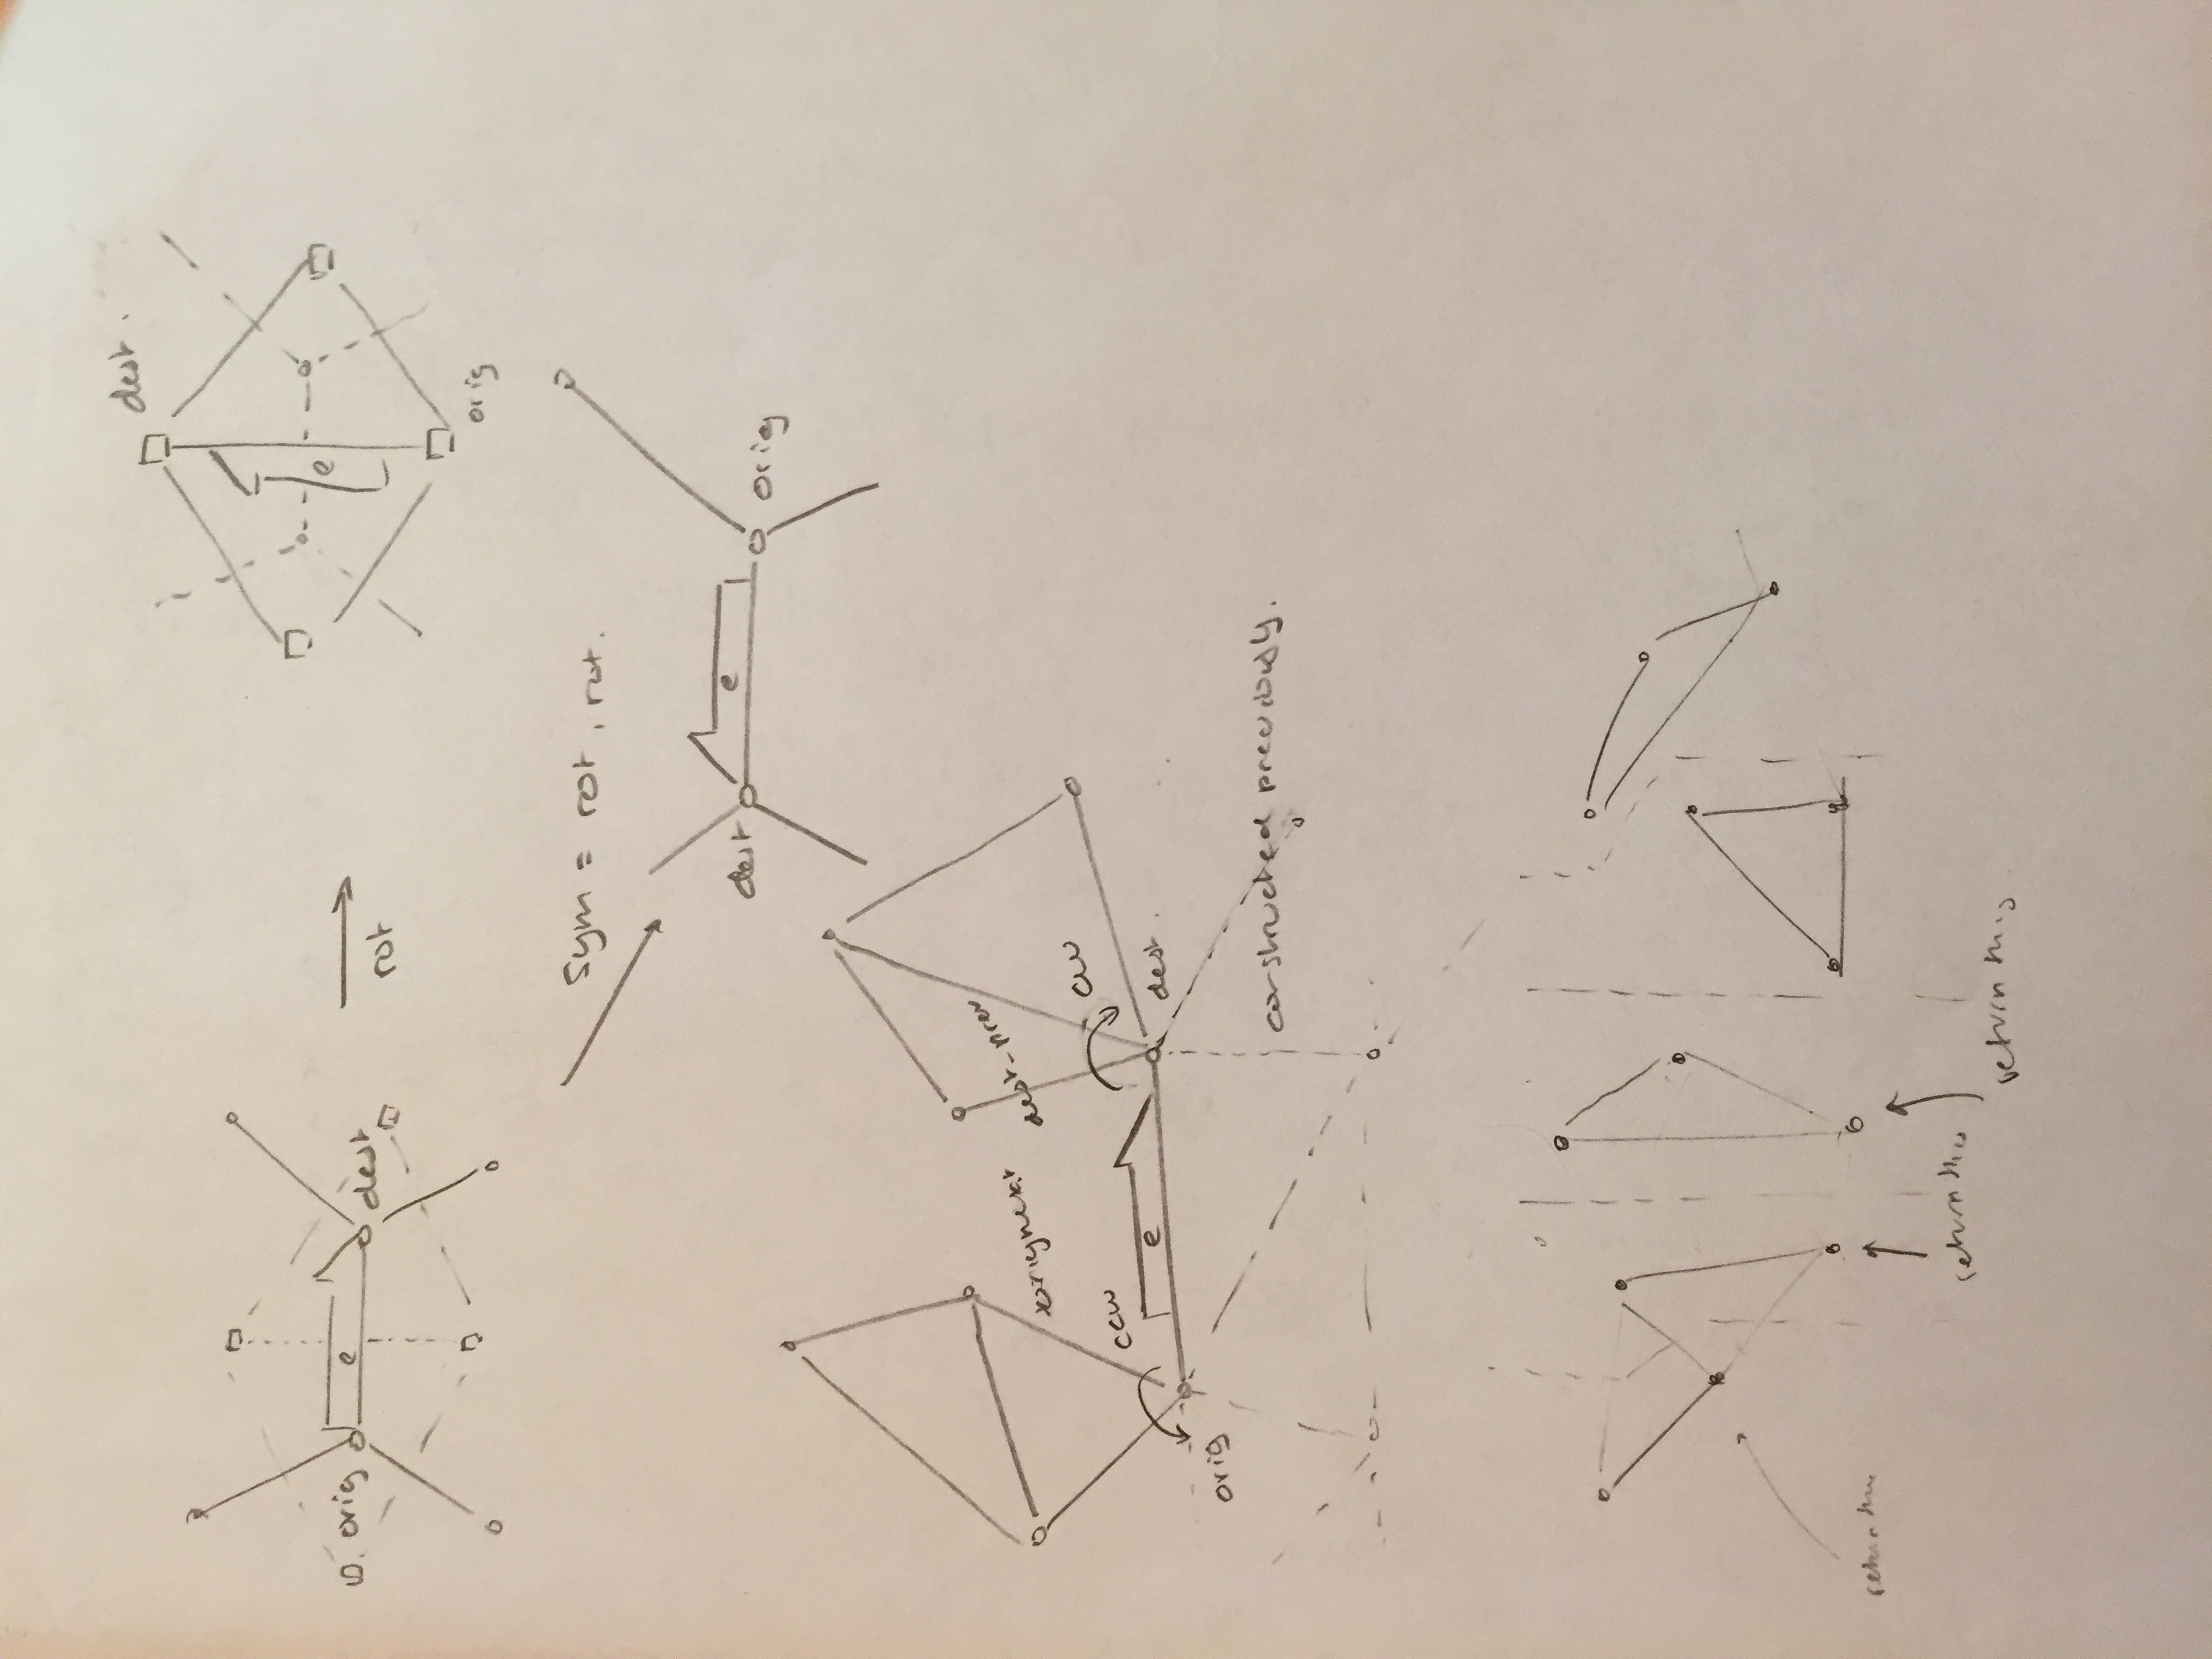 dest.
orig e dest
rot
e
orig
Sym = rot . rot.
dest e orig
orignext
dest-prev
ccw
cw
e
dest.
orig
constructed previously.
return this
return this
return this